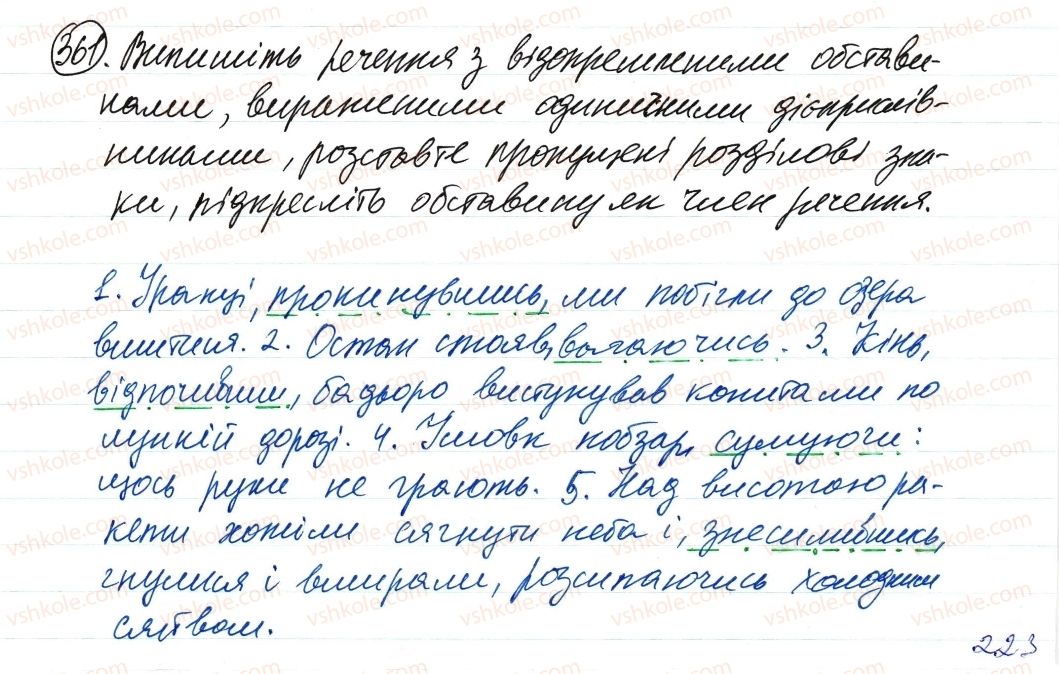 361. Випишіть речення з відокремленими обстави-
нами, вираженими одиничними дієприслів-
никами, розставте пропущені розділові зна-
ки, підкресліть обставину як член речення.
1. Уранці, прокинувшись, ми побігли до озера
вмитися. 2. Остап стояв, вагаючись. 3. Кінь,
відпочивши, бадьоро вистукував копитами по
лункій дорозі. 4. Умовк кобзар, сумуючи:
щось руки не грають. 5. Над висотою ра-
кети хотіли сягнути неба і, знесилившись,
гнулися і вмирали, розсипаючись холодним
сяйвом.
223